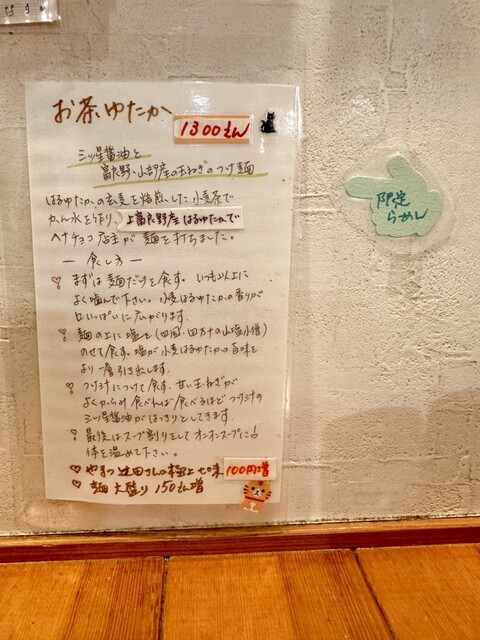 お茶ゆたか
1300えん
三ツ星醤油と
富良野・山部産の玉ねぎのつけ麺
はるゆたかの玄麦を焙煎した小麦茶で
かん水を作り、上富良野産はるゆたかで
ヘナチョコ店主が麺を打ちました。
― 食し方 ―
♡ まずは麺だけを食す。いつも以上に
よく噛んで下さい。小麦はるゆたかの香りが
口いっぱいに広がります。
♡ 麺の上に塩を(四国・四万十の山塩小僧)
のせて食す。塩が小麦はるゆたかの旨味を
より一層引き出します。
♡ つけ汁につけて食す。甘い玉ねぎが
よくからみ食べれば食べるほどつけ汁の
三ツ星醤油がはっきりとしてきます。
♡ 最後はスープ割りをしてオニオンスープに!
体を温めて下さい。
♡ やまつ辻田さんの極上七味 100円増
♡ 麺 大盛り 150えん増
限定
らーめん